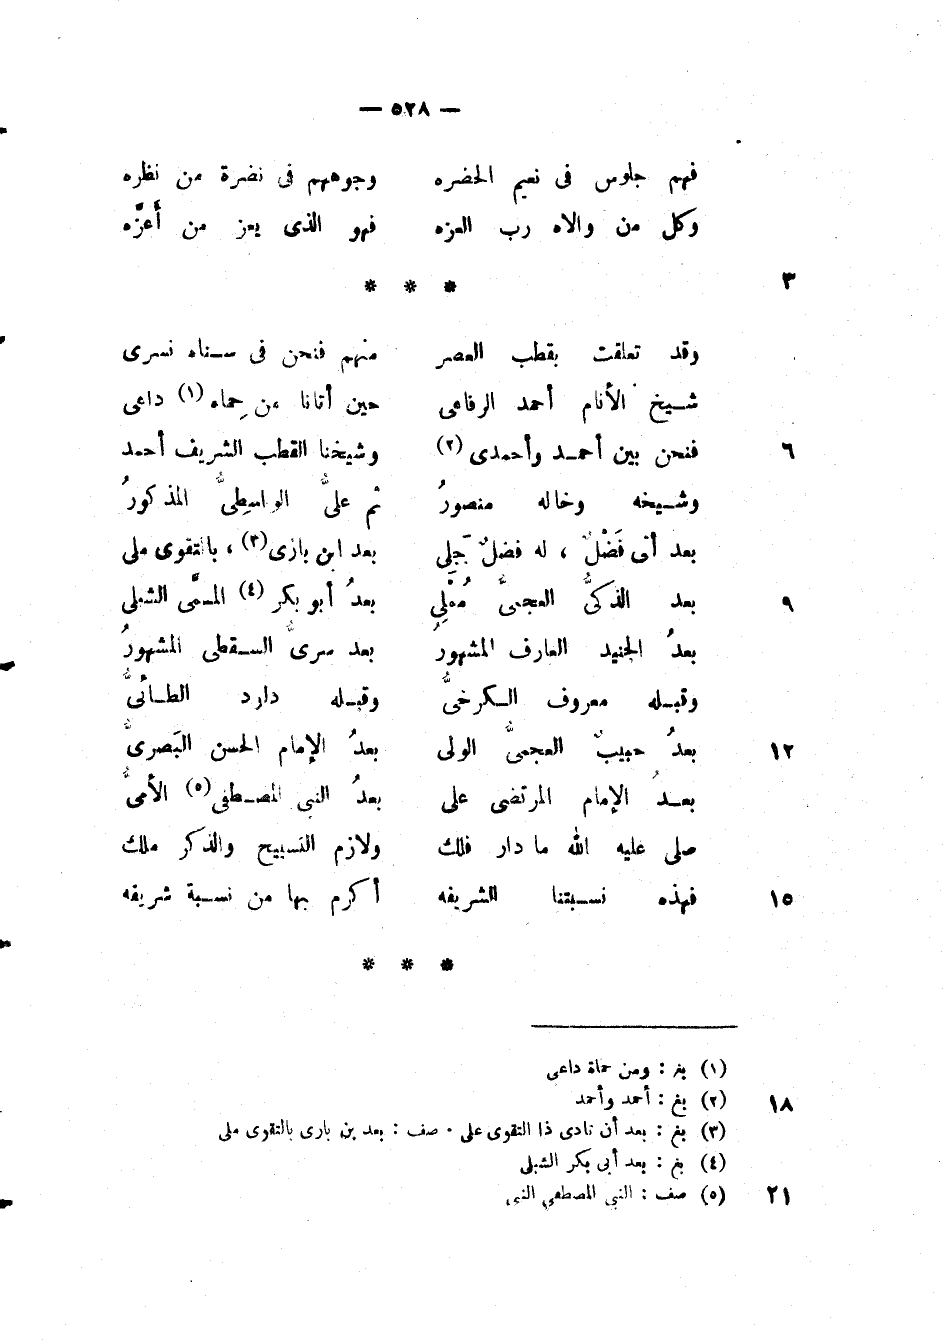 — ٥٢٨ —
فهم جلوس فى نعيم الحضره وجوههم فى نضرة من نظره
وكل من والاه رب العزه فهو الذى يعز من أعزَّه
٣ * * *
وقد تعلقت بقطب العصر منهم فنحن فى سناه نسرى
شيخ الأنام أحمد الرفاعى حين أتانا من حِماه (١) داعى
٦ فنحن بين أحمد وأحمدى (٢) وشيخنا القطب الشريف أحمد
وشيخه وخاله منصورُ ثم علىٌّ الواسطِىٌّ المذكورُ
بعد أبى فَضْلٌ ، له فضلٌ جَلِى بعد ابن بازى(٣) ، بالتقوى ملى
٩ بعد الذكىُّ العجمىُّ مُمْلِى بعدُ أبو بكر (٤) المسمَّى الشبلى
بعدُ الجنيد العارف المشهورُ بعد سرىٌّ السقطى المشهورُ
وقبله معروف الكرخىُّ وقبله دارد الطائىُّ
١٢ بعدُ حبيبٌ العجمىُّ الولى بعدُ الإمام الحسن البَصرىُّ
بعدُ الإمام المرتضى على بعدُ النبى المصطفى(٥) الأمىُّ
صلى عليه الله ما دار فلك ولازم التسبيح والذكر ملك
١٥ فهذه نسبتنا الشريفه أكرم بها من نسبة شريفه
* * *
(١) بغ : ومن حماة داعى
١٨ (٢) بغ : أحمد وأحمد
(٣) بغ : بعد أن نادى ذا التقوى على . صف : بعد بن بارى بالتقوى ملى
(٤) بغ : بعد أبى بكر الشبلى
٢١ (٥) صف : النبى المصطفى النبى